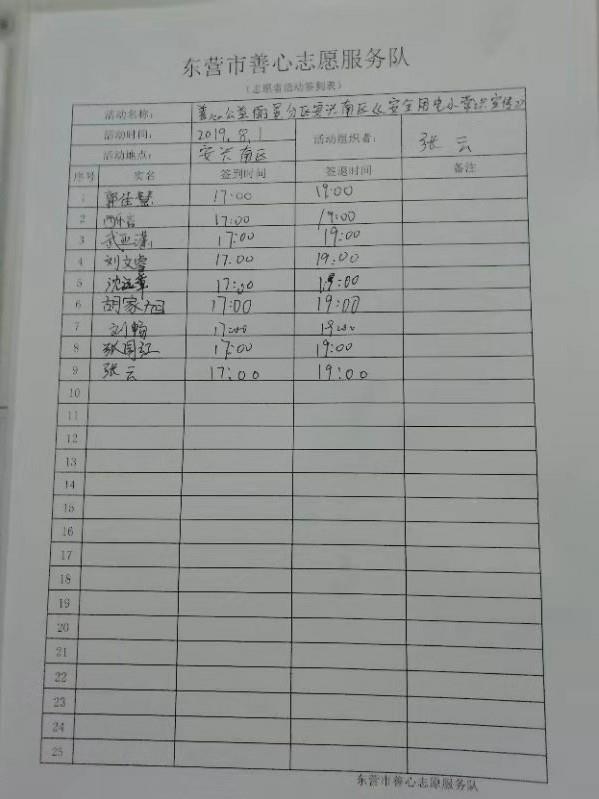 东营市善心志愿服务队
(志愿者活动签到表)
活动名称： 善心公益 分区安兴南区《安全用电小常识宣传》
活动时间： 2019.8.1 活动组织者： 张云
活动地点： 安兴南区
序号 实名 签到时间 签退时间 备注
1 郭佳慧 17:00 19:00
2 17:00 19:00
3 武亚潇 17:00 19:00
4 刘文睿 17:00 19:00
5 沈 17:00 19:00
6 胡家 17:00 19:00
7 刘畅 17:00 19:00
8 张国红 17:00 19:00
9 张云 17:00 19:00
10
11
12
13
14
15
16
17
18
19
20
21
22
23
24
25
东营市善心志愿服务队